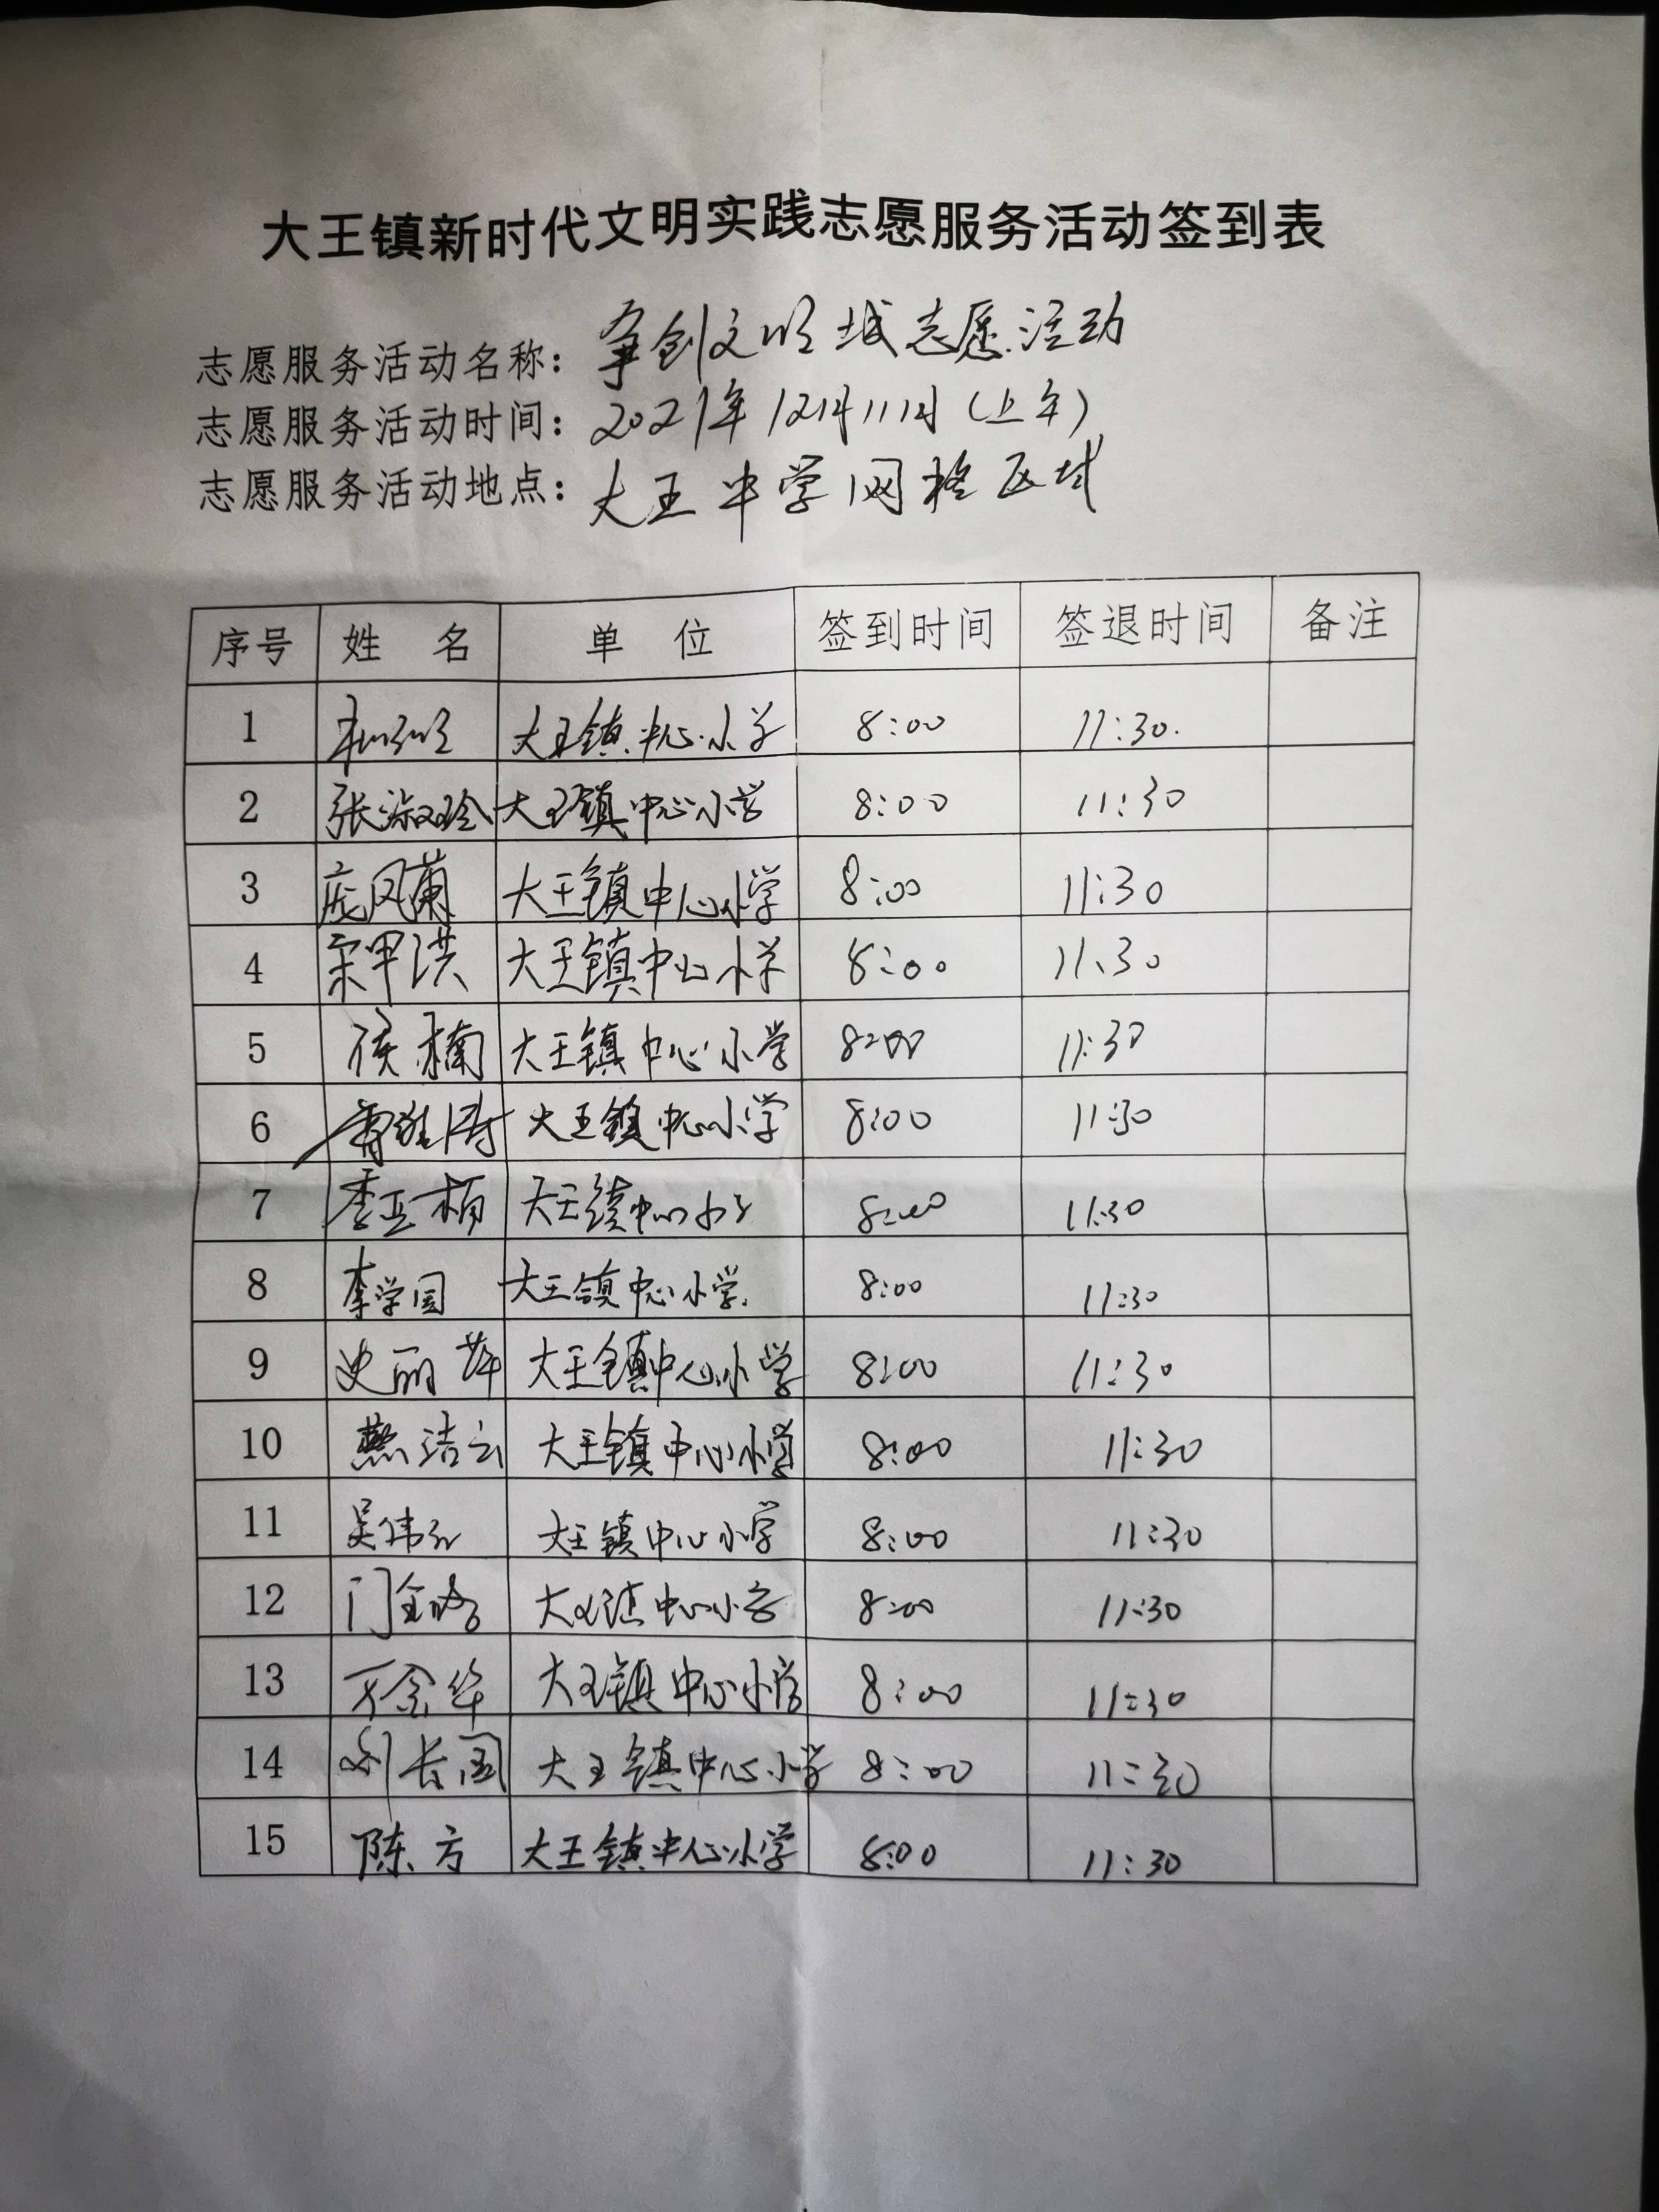 大王镇新时代文明实践志愿服务活动签到表
志愿服务活动名称：争创文明城志愿活动
志愿服务活动时间：2021年12月11日（上午）
志愿服务活动地点：大王中学网格区域
序号 姓名 单位 签到时间 签退时间 备注
1 大王镇中心小学 8:00 11:30
2 张淑玲 大王镇中心小学 8:00 11:30
3 庞风兰 大王镇中心小学 8:00 11:30
4 宋甲洪 大王镇中心小学 8:00 11:30
5 侯楠 大王镇中心小学 8:00 11:30
6 大王镇中心小学 8:00 11:30
7 李亚楠 大王镇中心小学 8:00 11:30
8 李学国 大王镇中心小学 8:00 11:30
9 史丽萍 大王镇中心小学 8:00 11:30
10 燕洁云 大王镇中心小学 8:00 11:30
11 吴伟 大王镇中心小学 8:00 11:30
12 门金 大王镇中心小学 8:00 11:30
13 万金华 大王镇中心小学 8:00 11:30
14 刘长国 大王镇中心小学 8:00 11:30
15 陈方 大王镇中心小学 8:00 11:30